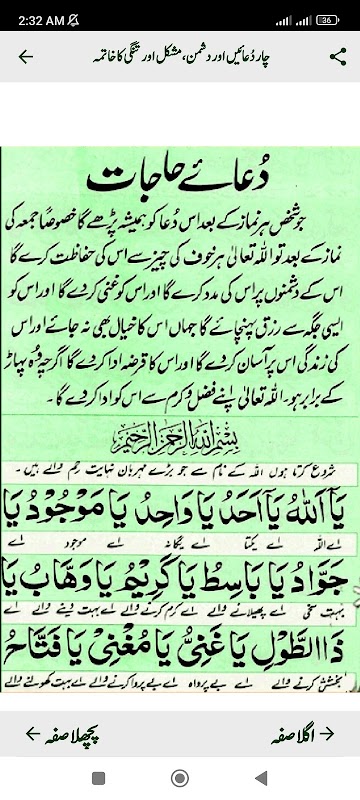 2:32 AM
36
چار دُعائیں اور دشمن، مشکل اور تنگی کا خاتمہ
دُعائے حاجات
جو شخص ہر نماز کے بعد اس دُعا کو ہمیشہ پڑھے گا خصوصًا جمعہ کی
نماز کے بعد تو اللہ تعالیٰ ہر خوف کی چیز سے اس کی حفاظت کرے گا
اس کے دشمنوں پر اس کی مدد کرے گا اور اس کو غنی کر دے گا اور اس کو
ایسی جگہ سے رزق پہنچائے گا جہاں اس کا خیال بھی نہ جائے اور اس
کی زندگی اس پر آسان کر دے گا اور اس کا قرضہ ادا کر دے گا اگرچہ وُہ پہاڑ
کے برابر ہو۔ اللہ تعالیٰ اپنے فضل و کرم سے اس کو ادا کر دے گا۔
بِسْمِ اللّٰهِ الرَّحْمٰنِ الرَّحِيْمِ
شروع کرتا ہوں اللہ کے نام سے جو بڑے مہربان نہایت رحم والے ہیں۔
يَآ اَللّٰهُ يَآ اَحَدُ يَا وَاحِدُ يَا مَوْجُوْدُ يَا
اے اللہ اے یکتا اے یگانہ اے موجود اے
جَوَّادُ يَا بَاسِطُ يَا كَرِيْمُ يَا وَهَّابُ يَا
بہت سخی اے پھیلانے والے اے کرم کرنے والے اے بہت دینے والے اے
ذَا الطَّوْلِ يَا غَنِىُّ يَا مُغْنِىْ يَا فَتَّاحُ
بخشش کرنے والے اے بے پرواہ اے بے پروا کرنے والے اے بہت کھولنے والے
اگلا صفہ
پچھلا صفہ